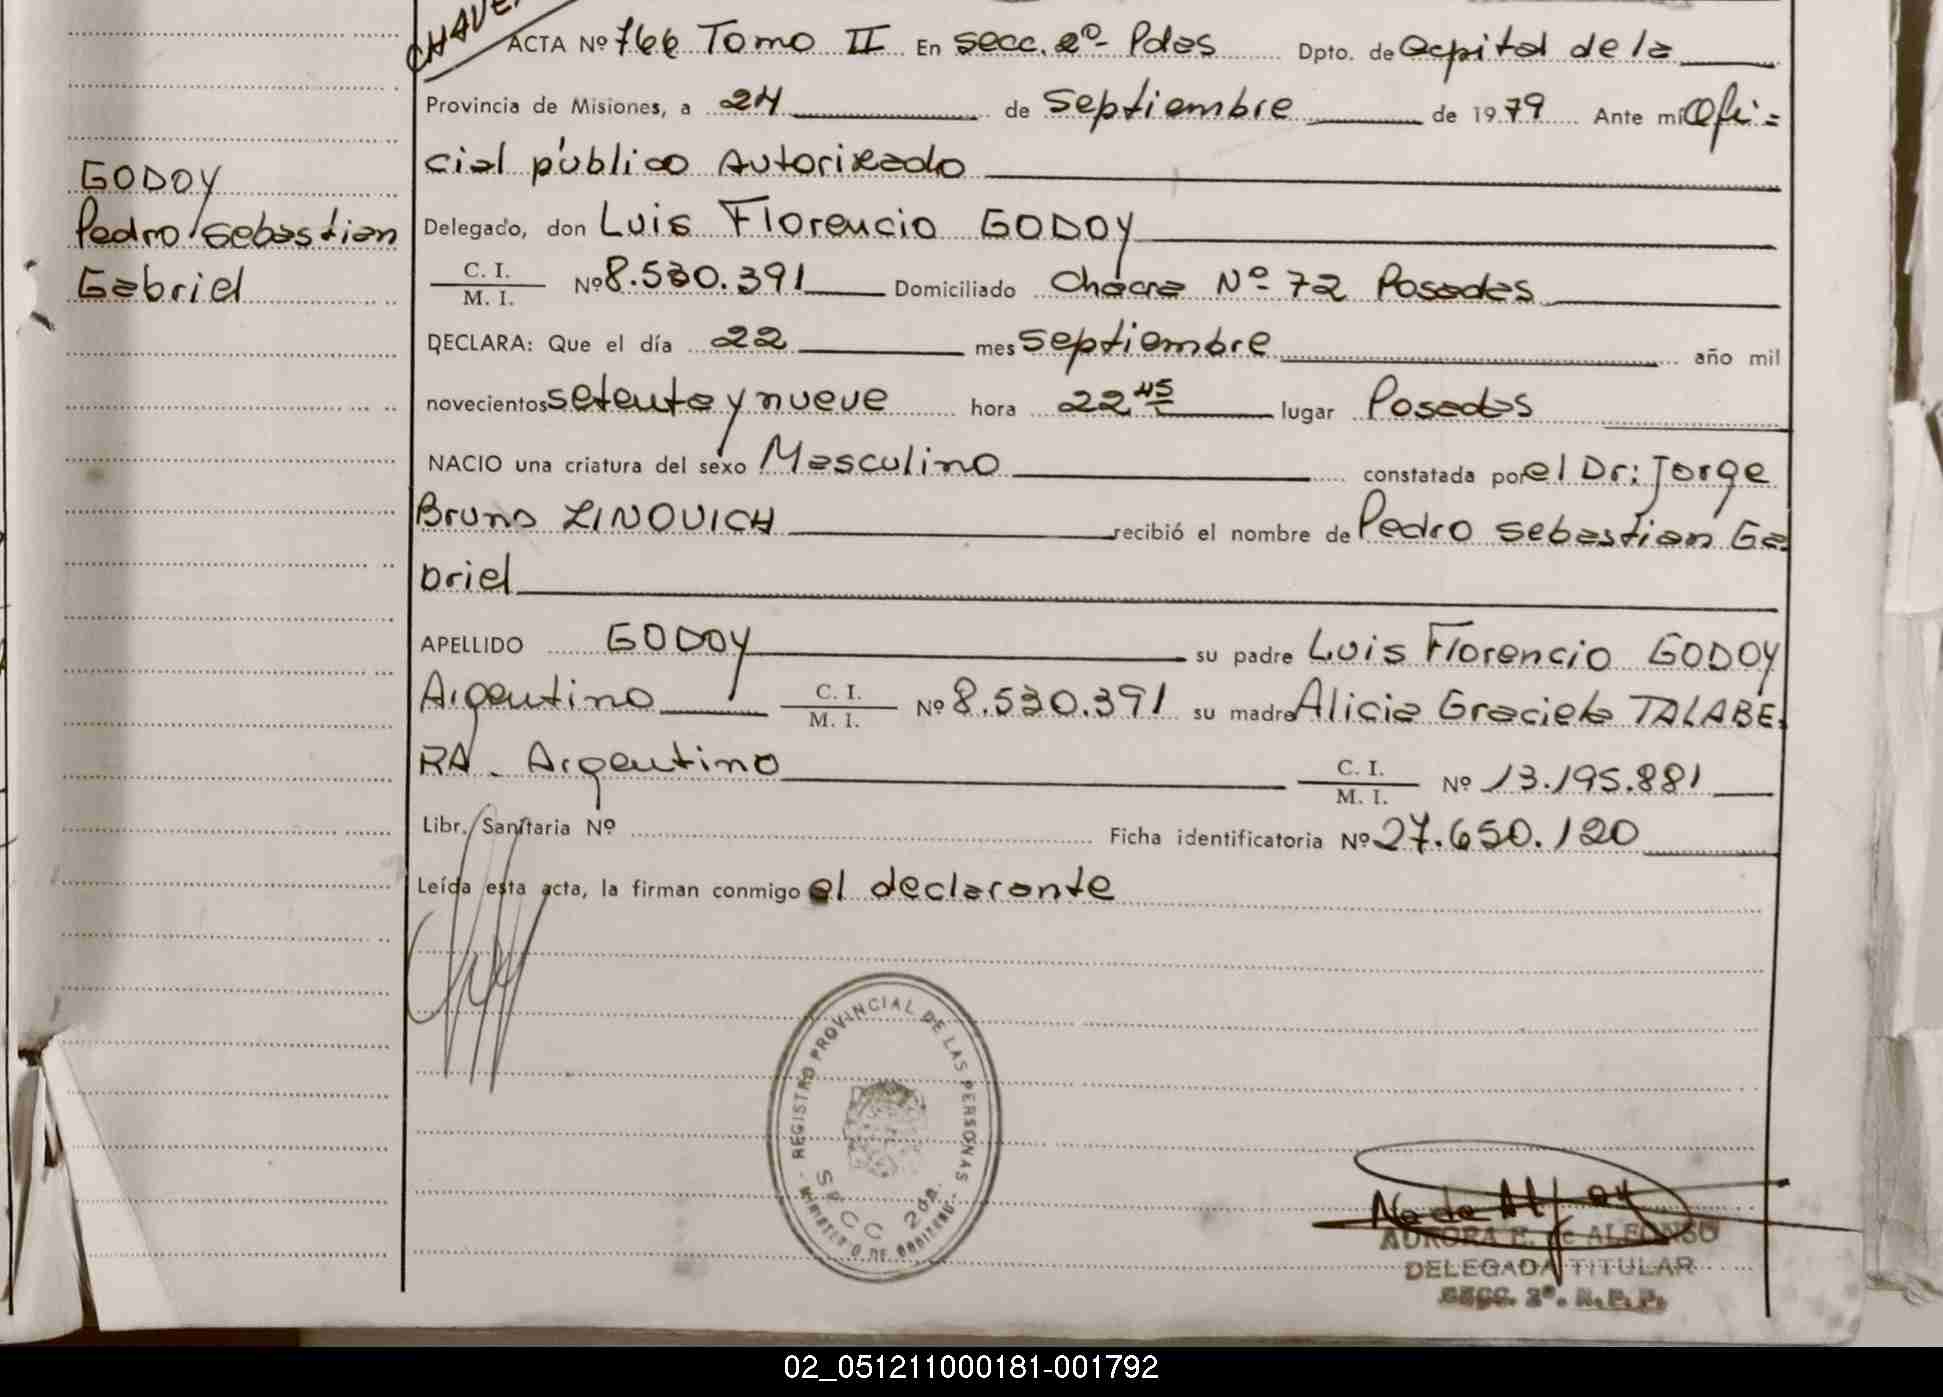 CHAVE
ACTA Nº 766 Tomo II En secc. 2º- Pdas Dpto. de Capital de la
Provincia de Misiones, a 24 de Septiembre de 1979 Ante mi Ofi=
cial público Autorizado
GODOY
Pedro Sebastian
Gabriel
Delegado, don Luis Florencio GODOY
C. I.
M. I. Nº 8.530.391 Domiciliado Chacra Nº 72 Posadas
DECLARA: Que el día 22 mes septiembre año mil
novecientos setenta y nueve hora 22 45 lugar Posadas
NACIO una criatura del sexo Masculino constatada por el Dr: Jorge
Bruno LINOVICH recibió el nombre de Pedro Sebastian Ga
briel
APELLIDO GODOY su padre Luis Florencio GODOY
Argentino C. I.
M. I. Nº 8.530.391 su madre Alicia Graciela TALABE
RA. Argentino C. I.
M. I. Nº 13.195.881
Libr. Sanitaria Nº Ficha identificatoria Nº 27.650.120
Leída esta acta, la firman conmigo el declarante
REGISTRO PROVINCIAL DE LAS PERSONAS
SECC 2da.
MINISTERIO DE GOBIERNO
AURORA E. de ALFONSO
DELEGADA TITULAR
SECC. 2º. R.P.P.
02_051211000181-001792